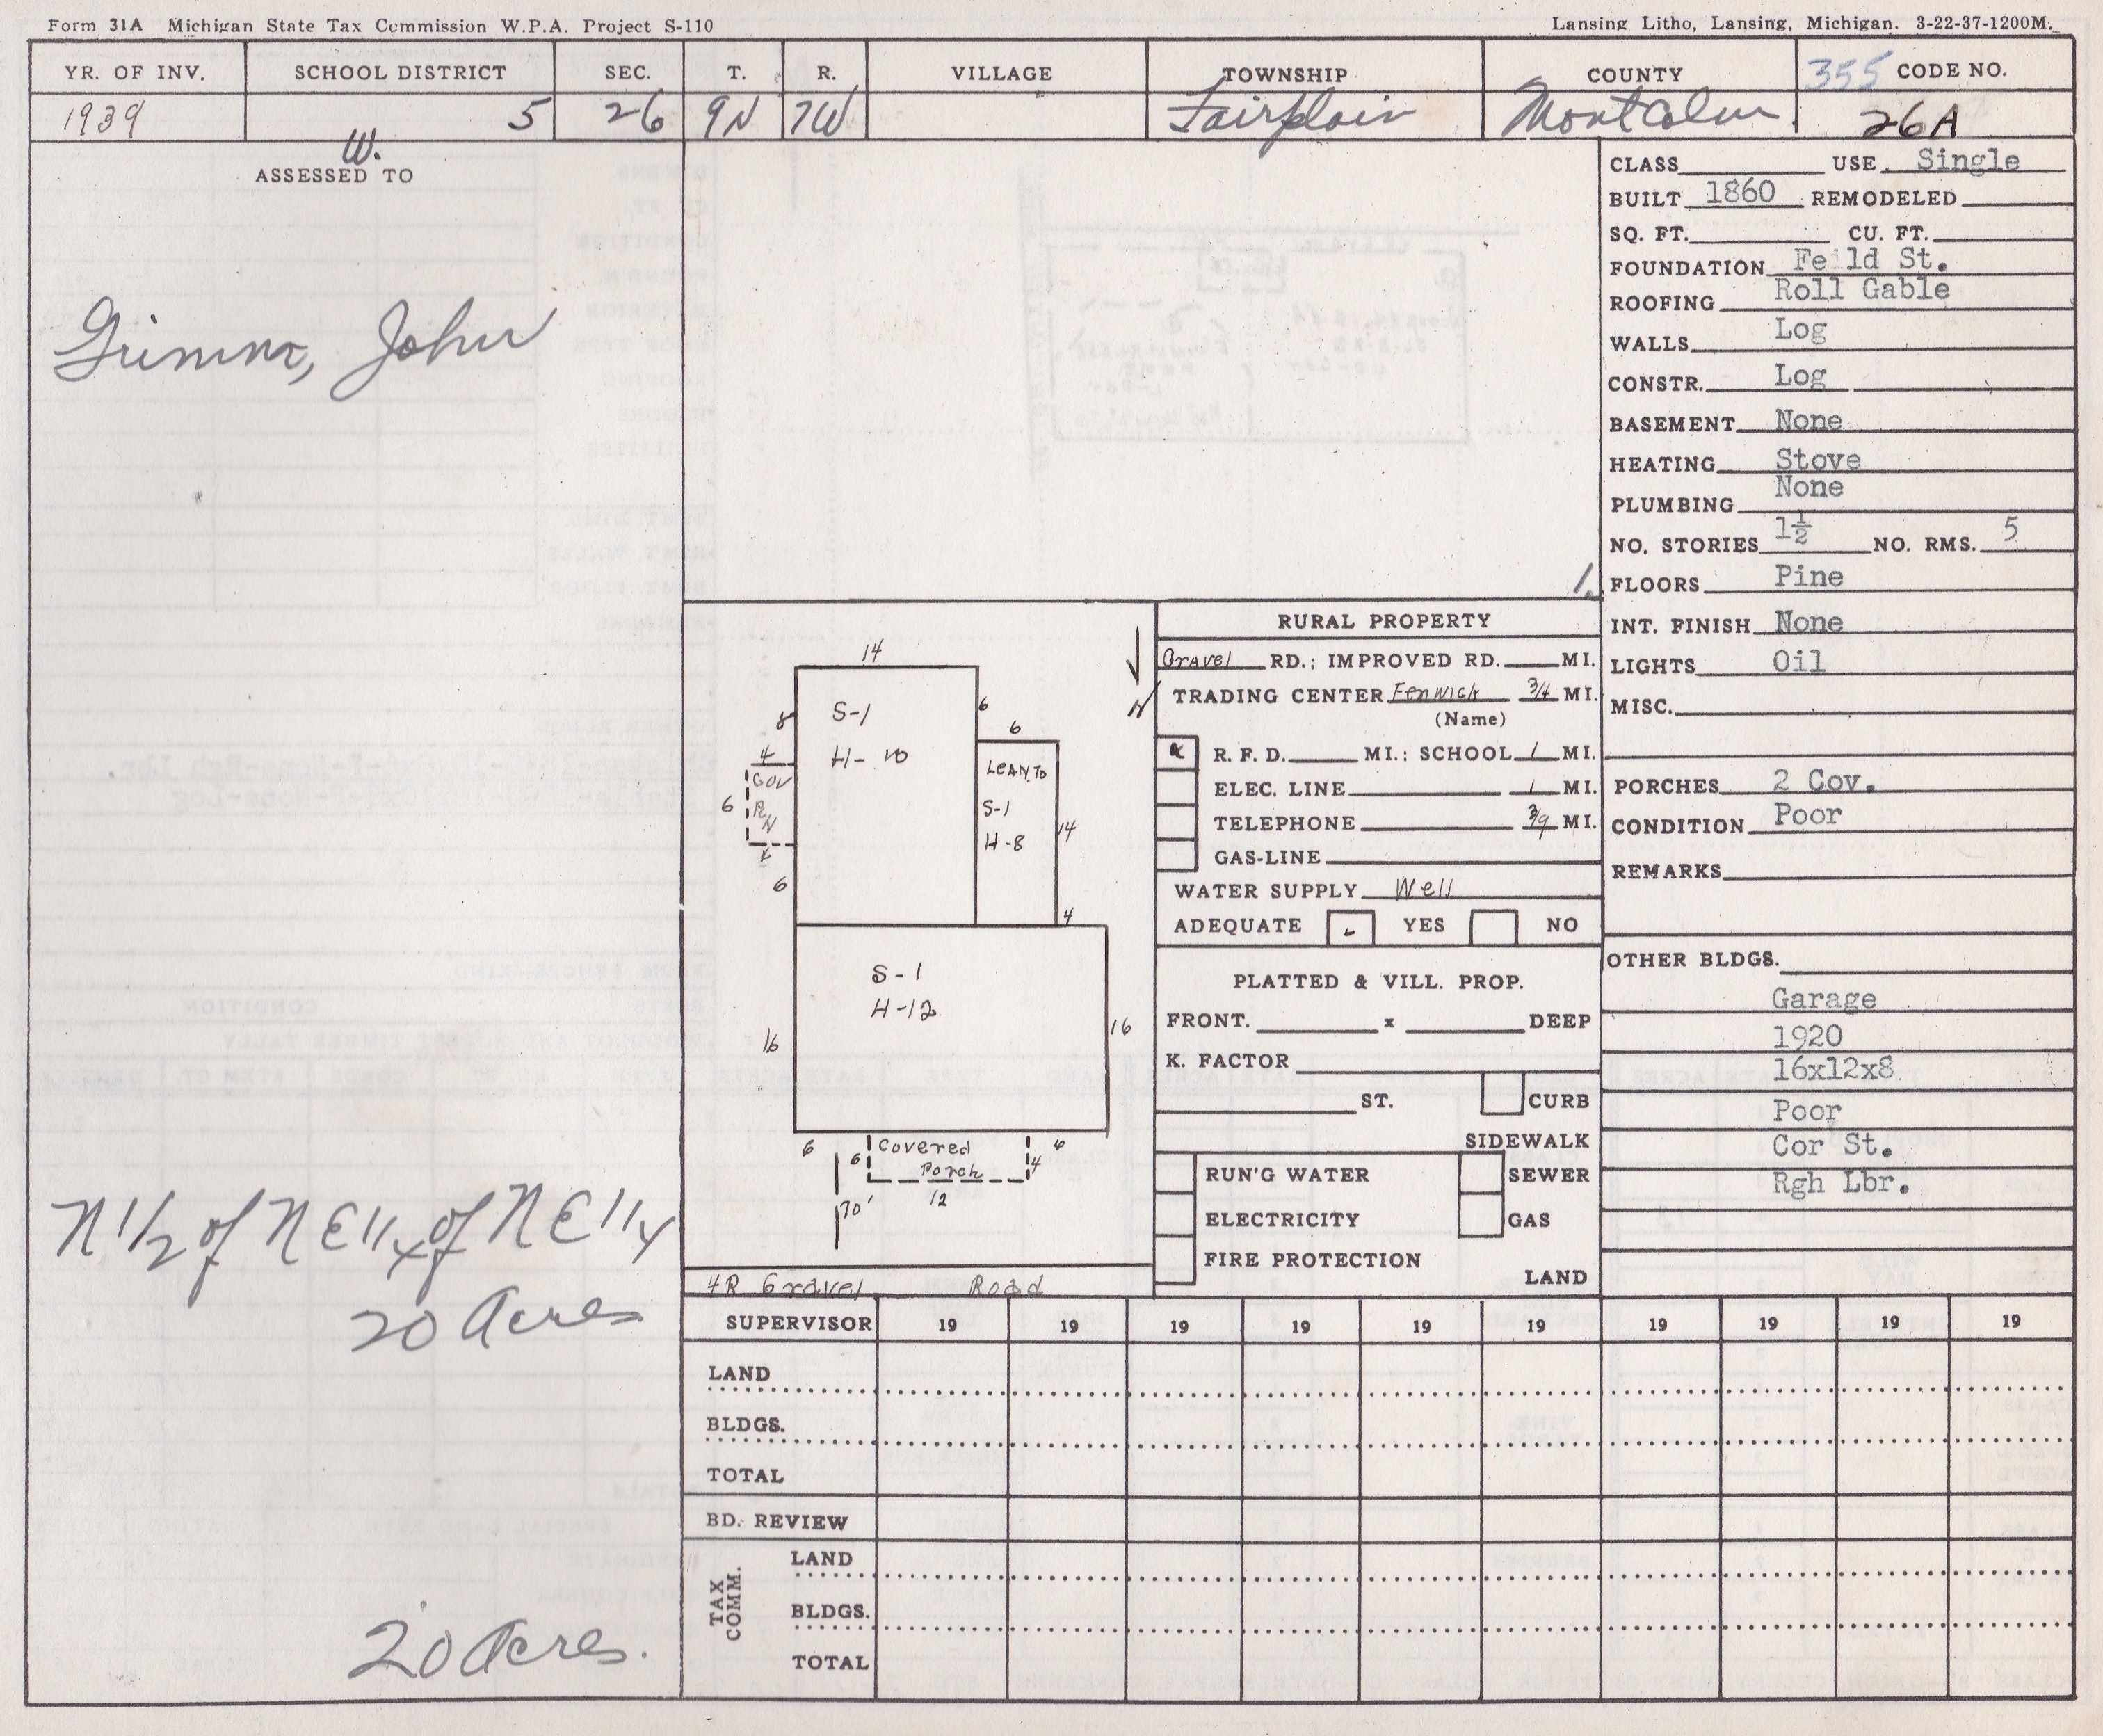 Form 31A Michigan State Tax Commission W.P.A. Project S-110
Lansing Litho, Lansing, Michigan. 3-22-37-1200M.
YR. OF INV. SCHOOL DISTRICT SEC. T. R. VILLAGE TOWNSHIP COUNTY 355 CODE NO.
1939 5 26 9N 7W Fairplain Montcalm 26A
W.
ASSESSED TO
Grimm, John
N 1/2 of NE 1/4 of NE 1/4
20 Acres
20 Acres.
CLASS USE. Single
BUILT 1860 REMODELED
SQ. FT. CU. FT.
FOUNDATION Fe ld St.
ROOFING Roll Gable
WALLS Log
CONSTR. Log
BASEMENT None
HEATING Stove
PLUMBING None
NO. STORIES 1½ NO. RMS. 5
1.
FLOORS Pine
INT. FINISH None
LIGHTS Oil
MISC.
PORCHES 2 Cov.
CONDITION Poor
REMARKS
OTHER BLDGS.
Garage
1920
16x12x8
Poor
Cor St.
Rgh Lbr.
14
S-1
H-10
8
6
6
4
COV
6
Lean to
S-1
H-8
14
6
4
S-1
H-12
16
16
6
6
Covered
Porch
4
6
12
70'
4R Gravel Road
N
RURAL PROPERTY
Gravel RD.; IMPROVED RD. MI.
TRADING CENTER Fenwick 3/4 MI.
(Name)
x R. F. D. MI.; SCHOOL 1 MI.
ELEC. LINE 1 MI.
TELEPHONE 3/4 MI.
GAS-LINE
WATER SUPPLY Well
ADEQUATE YES NO
PLATTED & VILL. PROP.
FRONT. x DEEP
K. FACTOR
ST. CURB
SIDEWALK
RUN'G WATER SEWER
ELECTRICITY GAS
FIRE PROTECTION
LAND
SUPERVISOR 19 19 19 19 19 19 19 19 19 19
LAND
BLDGS.
TOTAL
BD. REVIEW
TAX COMM.
LAND
BLDGS.
TOTAL